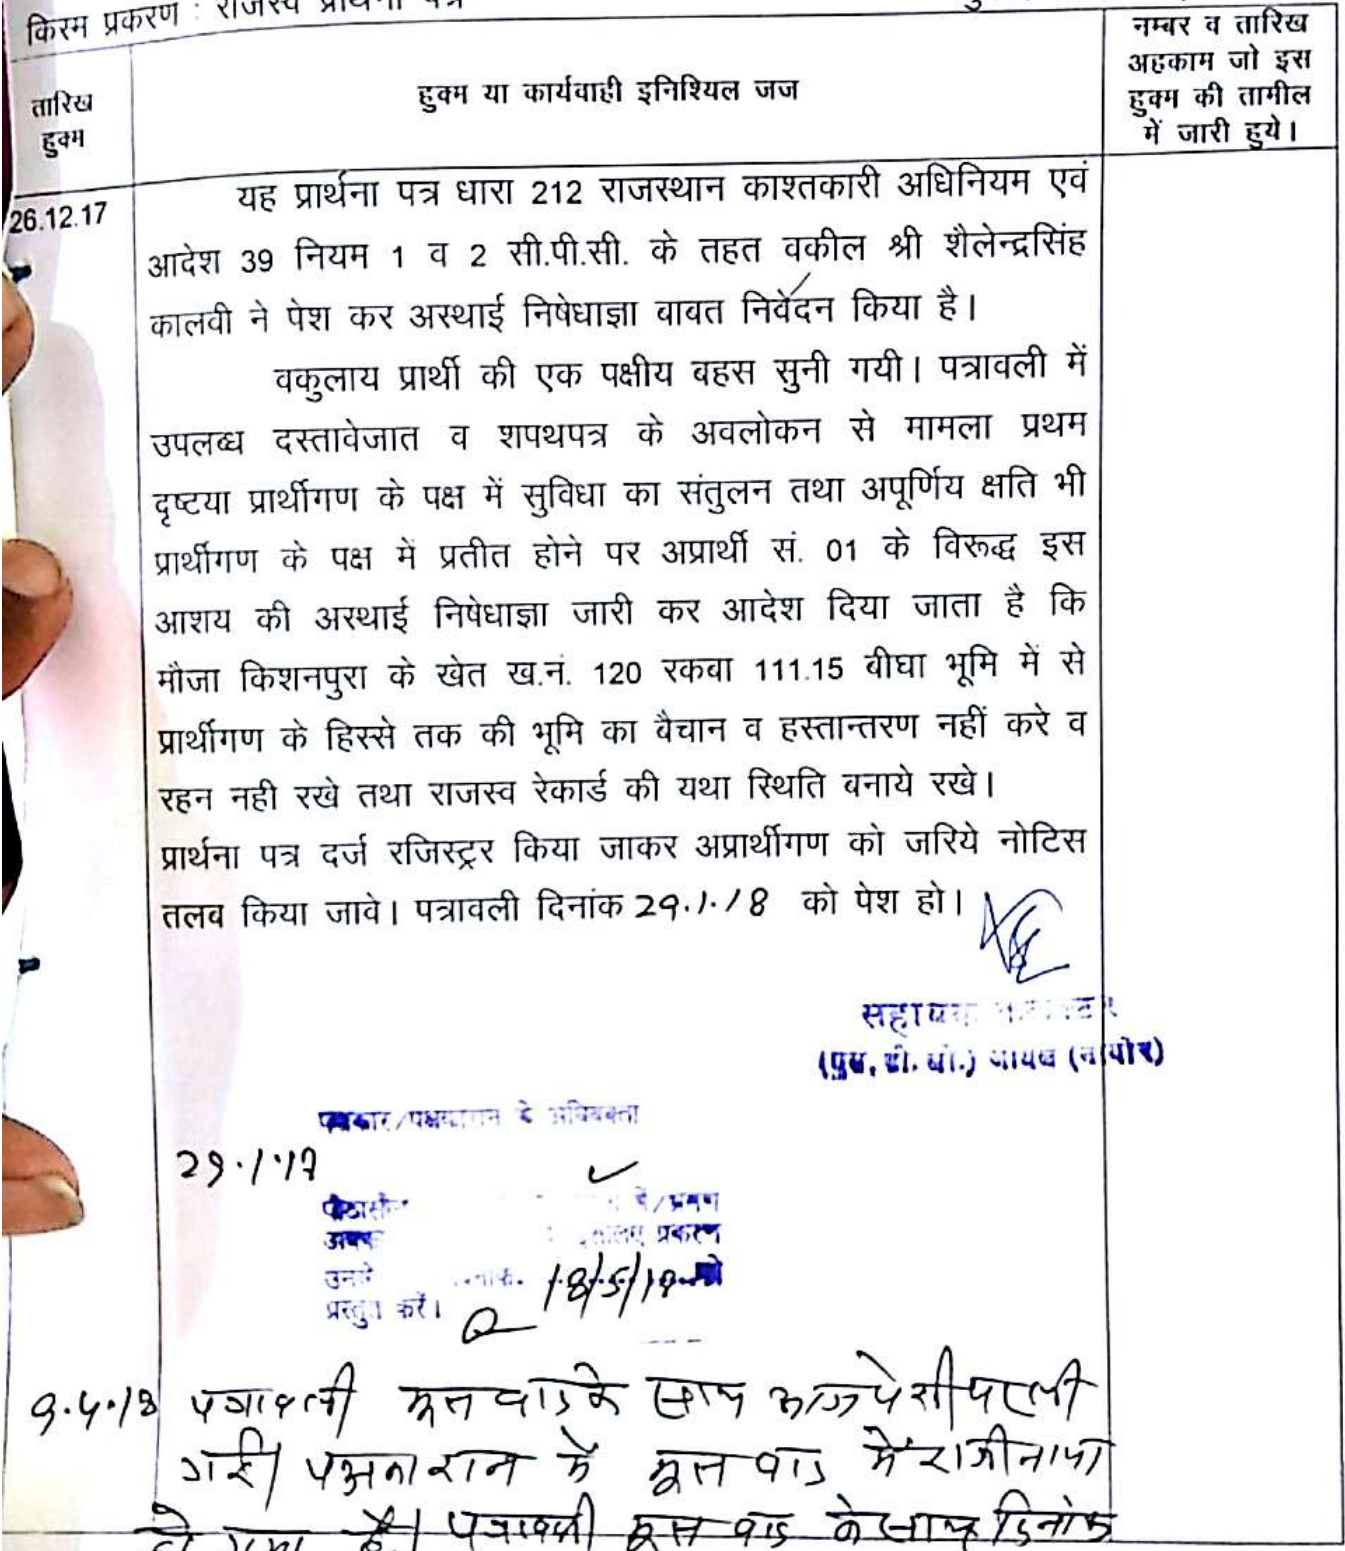 किस्म प्रकरण : राजस्व प्रार्थना पत्र
तारिख
हुक्म
हुक्म या कार्यवाही इनिश्यिल जज
नम्बर व तारिख
अहकाम जो इस
हुक्म की तामील
में जारी हुये।
26.12.17
यह प्रार्थना पत्र धारा 212 राजस्थान काश्तकारी अधिनियम एवं
आदेश 39 नियम 1 व 2 सी.पी.सी. के तहत वकील श्री शैलेन्द्रसिंह
कालवी ने पेश कर अस्थाई निषेधाज्ञा बाबत निवेदन किया है।
वकुलाय प्रार्थी की एक पक्षीय बहस सुनी गयी। पत्रावली में
उपलब्ध दस्तावेजात व शपथपत्र के अवलोकन से मामला प्रथम
दृष्टया प्रार्थीगण के पक्ष में सुविधा का संतुलन तथा अपूर्णिय क्षति भी
प्रार्थीगण के पक्ष में प्रतीत होने पर अप्रार्थी सं. 01 के विरूद्ध इस
आशय की अस्थाई निषेधाज्ञा जारी कर आदेश दिया जाता है कि
मौजा किशनपुरा के खेत ख.नं. 120 रकबा 111.15 बीघा भूमि में से
प्रार्थीगण के हिस्से तक की भूमि का बैचान व हस्तान्तरण नहीं करे व
रहन नही रखे तथा राजस्व रेकार्ड की यथा स्थिति बनाये रखे।
प्रार्थना पत्र दर्ज रजिस्ट्रर किया जाकर अप्रार्थीगण को जरिये नोटिस
तलब किया जावे। पत्रावली दिनांक 29.1.18 को पेश हो।
(एस. डी. ओ.) जायल (नागौर)
29.1.18
प्रकरण
प्रस्तुत करें।
9.4.18 पत्रावली मूल वाद के साथ आज पेशी पर ली
गई। पक्षकारान में मूल वाद में राजीनामा
हो गया है। पत्रावली मूल वाद के साथ दिनांक